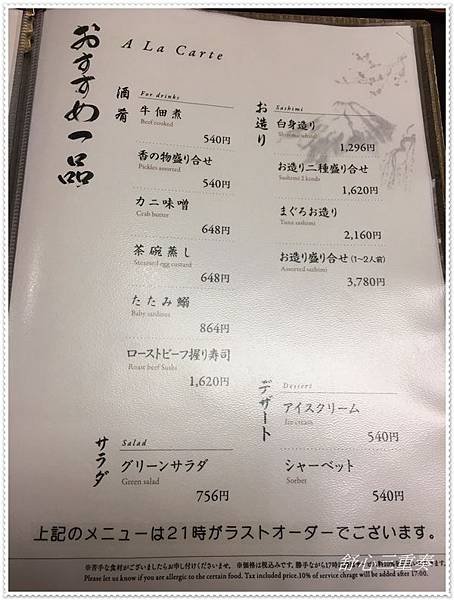 おすすめ一品
A La Carte
酒肴
For drinks
牛佃煮
Beef cooked
540円
香の物盛り合せ
Pickles assorted
540円
カニ味噌
Crab butter
648円
茶碗蒸し
Steamed egg custard
648円
たたみ鰯
Baby sardines
864円
ローストビーフ握り寿司
Roast beef Sushi
1,620円
サラダ
Salad
グリーンサラダ
Green salad
756円
お造り
Sashimi
白身造り
1,296円
お造り二種盛り合せ
Sashimi 2 kinds
1,620円
まぐろお造り
Tuna sashimi
2,160円
お造り盛り合せ (1~2人前)
Assorted sashimi
3,780円
デザート
Dessert
アイスクリーム
Ice cream
540円
シャーベット
Sorbet
540円
上記のメニューは21時がラストオーダーでございます。
※苦手な食材がございましたらお申し付けくださいませ。 ※価格は税込みです。勝手ながら17時
Please let us know if you are allergic to the certain food. Tax included price.10% of service chrage will be added after 17:00.
舒心二重奏